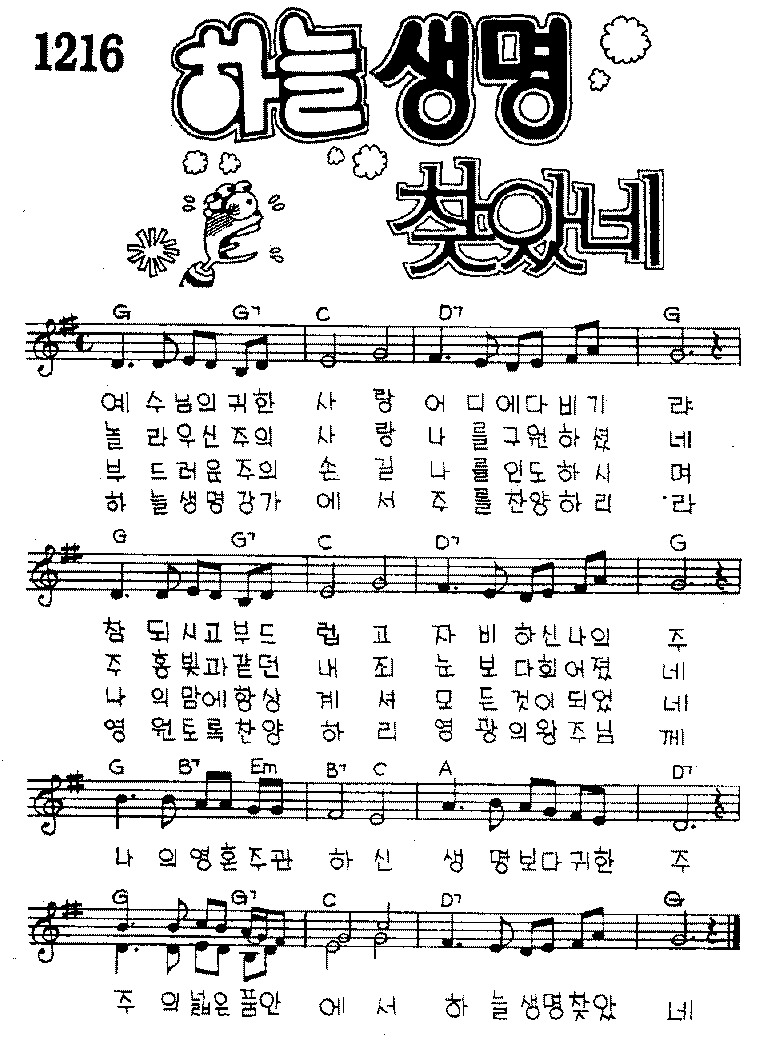 1216
하늘 생명
찾았네
G G7 C D7 G
예 수님의귀한 사 랑 어 디에다비기 랴
놀 라우신주의 사 랑 나 를구원하셨 네
부 드러운주의 손 길 나 를인도하시 며
하 늘생명강가 에 서 주 를찬양하리 라
G G7 C D7 G
참 되시고부드 럽 고 자 비하신나의 주
주 홍빛과같던 내 죄 눈 보다희어졌 네
나 의맘에항상 계 셔 모 든것이되었 네
영 원토록찬양 하 리 영 광의왕주님 께
G B7 Em B7 C A D7
나 의영혼주관 하 신 생 명보다귀한 주
G G7 C D7 G
주 의넓은품안 에 서 하 늘생명찾았 네